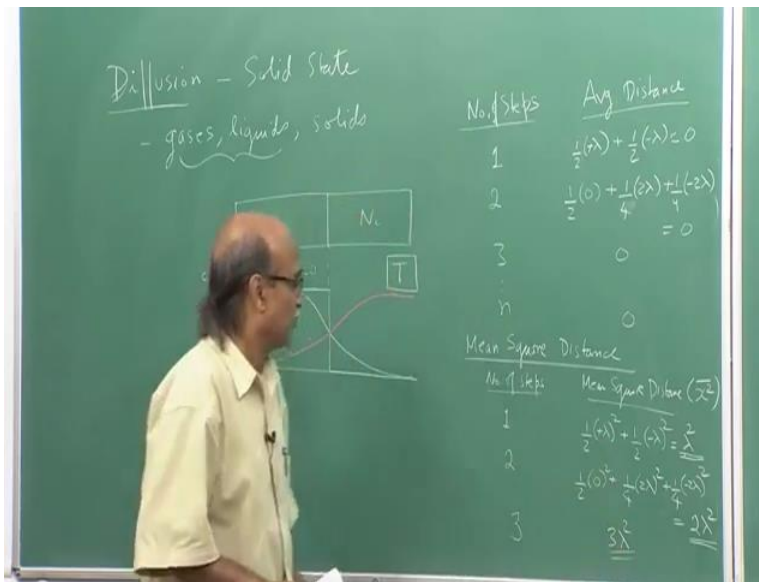 Diffusion - Solid State
- gases, liquids, solids
Ni
T
No. of Steps Avg Distance
1 ½(+λ) + ½(-λ) = 0
2 ½(0) + ¼(2λ) + ¼(-2λ)
= 0
3 0
⋮
n 0
Mean Square Distance
No. of Steps Mean Square Distance (x̄²)
1 ½(+λ)² + ½(-λ)² = λ²
2 ½(0)² + ¼(2λ)² + ¼(-2λ)²
= 2λ²
3 3λ²